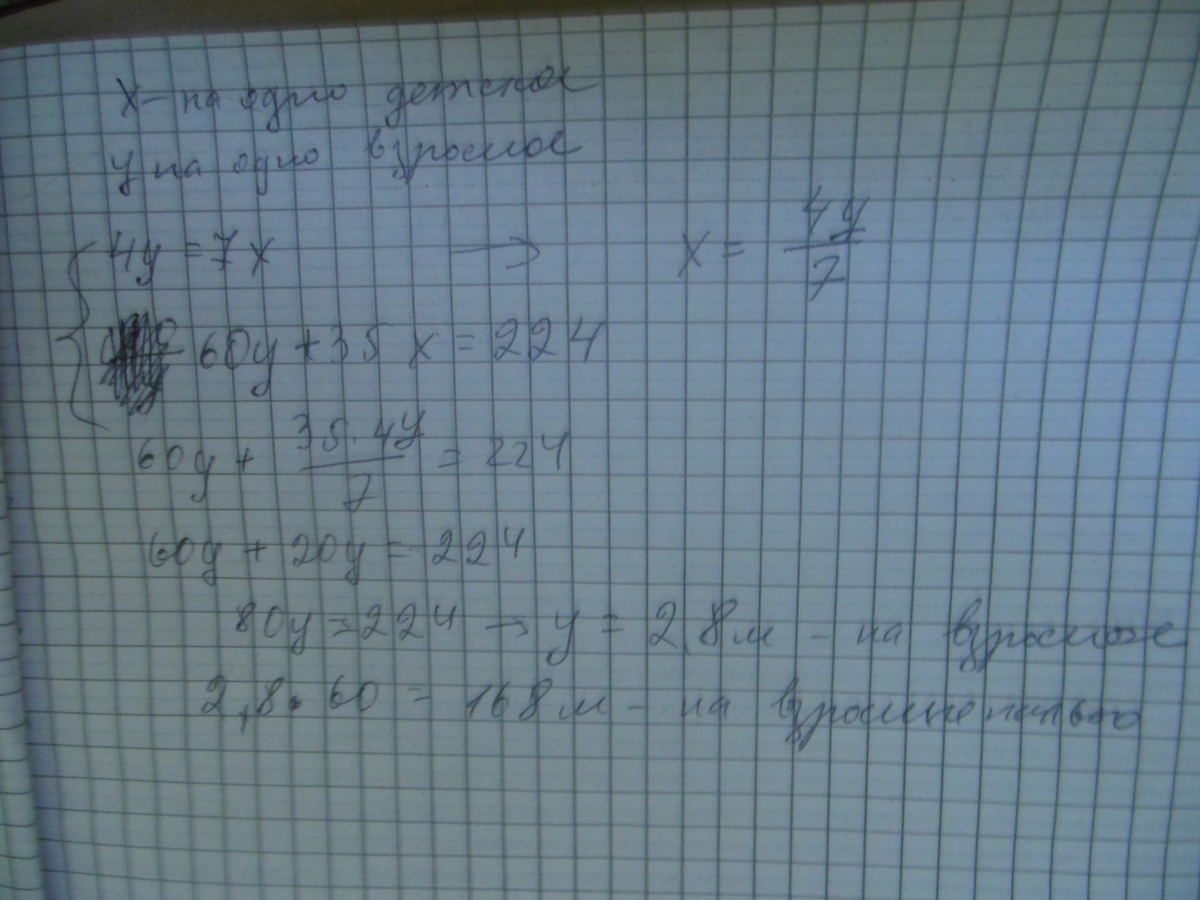 х – на одно детское
у на одно взрослое
4у = 7х → х = 4у/7
60у + 35 х = 224
60у + 35·4у/7 = 224
60у + 20у = 224
80у = 224 → у = 2,8м – на взрослое
2,8·60 = 168м – на взрослые пальто